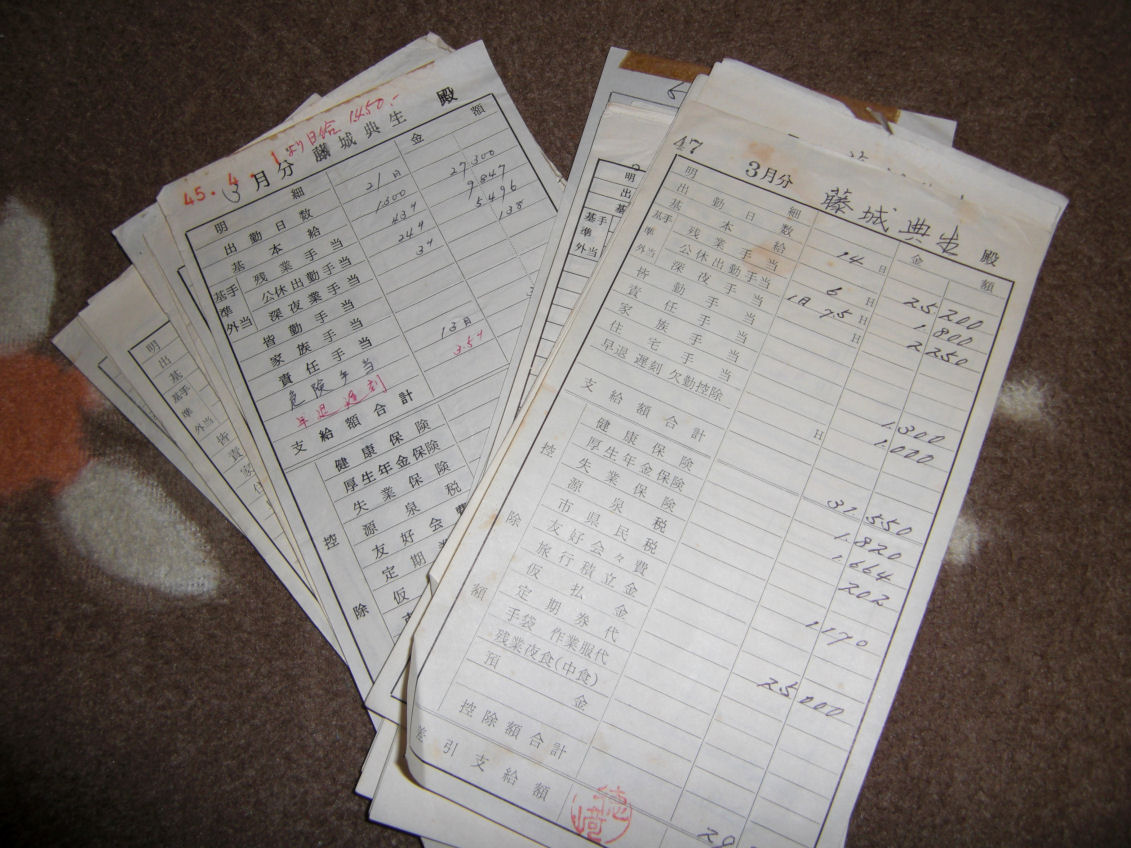 45.4.1より日給 1450.-
3月分 藤城典生 殿
明細 金額
出勤日数 21日
基本給 1300 27.300
残業手当 434 9.847
公休出勤手当 5.496
深夜業手当 34 138
基準外手当
皆勤手当
家族手当
責任手当 13日
危険手当
早退遅刻
支給額合計
控除
健康保険
厚生年金保険
失業保険
源泉税
友好会費
定期
仮
47 3月分 藤城典生 殿
明細 金額
出勤日数 14日
基本給 25200
残業手当 6日 1.800
公休出勤手当 2250
深夜手当
基準外手当
皆勤手当
責任手当 1.300
家族手当 1.000
住宅手当
早退 遅刻 欠勤控除
支給額合計 31.550
控除額
健康保険 1.820
厚生年金保険 1.664
失業保険 202
源泉税
市県民税 1.170
友好会々費
旅行積立金
仮払金 25000
定期券代
手袋 作業服代
残業夜食(中食)
預金
控除額合計
差引支給額
明
出
基
基手
準
外当
皆
責
家
住
明
出
基手
準
外当